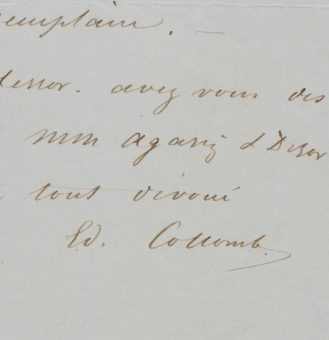 exemplaire. —
Desor. avez vous des
MM Agassiz & Desor
tout dévoué
Ed. Collomb